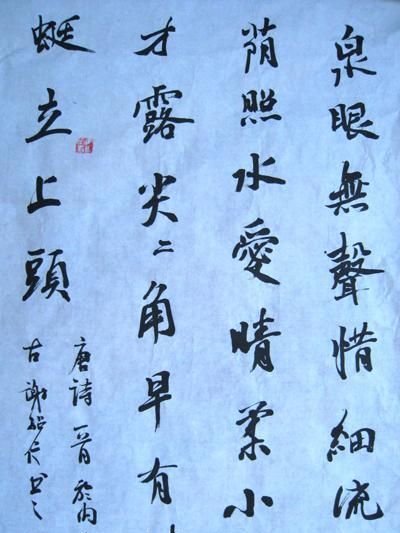 泉眼無聲惜細流
荫照水愛晴柔小
才露尖々角早有
蜓立上頭
唐詩一首於内
古謝书之